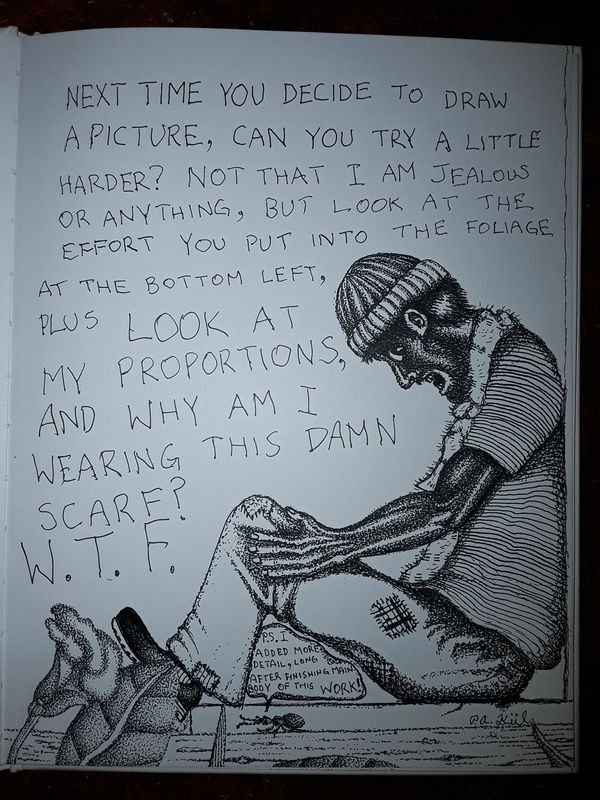 NEXT TIME YOU DECIDE TO DRAW
A PICTURE, CAN YOU TRY A LITTLE
HARDER? NOT THAT I AM JEALOUS
OR ANYTHING, BUT LOOK AT THE
EFFORT YOU PUT INTO THE FOLIAGE
AT THE BOTTOM LEFT,
PLUS LOOK AT
MY PROPORTIONS,
AND WHY AM I
WEARING THIS DAMN
SCARF?
W.T.F.
P.S. I
ADDED MORE
DETAIL, LONG
AFTER FINISHING MAIN
BODY OF THIS WORK!